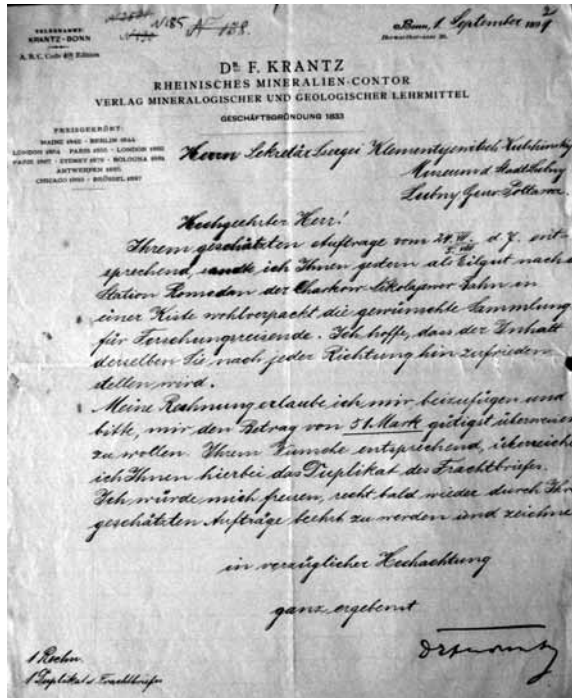 TELEGRAMME:
KRANTZ-BONN
A. B. C. Code 4th Edition
N 185 N 138.
Bonn, 1. September
Herwarthstrasse 36.
Dr. F. KRANTZ
RHEINISCHES MINERALIEN-CONTOR
VERLAG MINERALOGISCHER UND GEOLOGISCHER LEHRMITTEL
GESCHÄFTSGRÜNDUNG 1833
PREISGEKRÖNT:
MAINZ 1842 - BERLIN 1844
LONDON 1854 - PARIS 1855 - LONDON 1862
PARIS 1867 - SYDNEY 1879 - BOLOGNA 1881
ANTWERPEN 1885
CHICAGO 1893 - BRÜSSEL 1897
Herrn Sekretär Ssergei Klementjewitsch Kulshinsky
Museum d. Stadt Lubny
Lubny Gouv. Poltawa.
Hochgeehrter Herr!
Ihrem geschätzten Auftrage vom d. J. ent-
sprechend, sandte ich Ihnen gestern als Eilgut nach d.
Station Romodan der Charkow-Nikolajewer Bahn in
einer Kiste wohlverpackt die gewünschte Sammlung
für Forschungsreisende. Ich hoffe, dass der Inhalt
derselben Sie nach jeder Richtung hin zufrieden
stellen wird.
Meine Rechnung erlaube ich mir beizufügen und
bitte, mir den Betrag von 51 Mark gütigst überweisen
zu wollen. Ihrem Wunsche entsprechend, überreiche
ich Ihnen hierbei das Duplikat des Frachtbriefes.
Ich würde mich freuen, recht bald wieder durch Ihre
geschätzten Aufträge beehrt zu werden und zeichne
in vorzüglicher Hochachtung
ganz ergebenst
Dr F Krantz
1 Rechn.
1 Duplikat d. Frachtbriefes